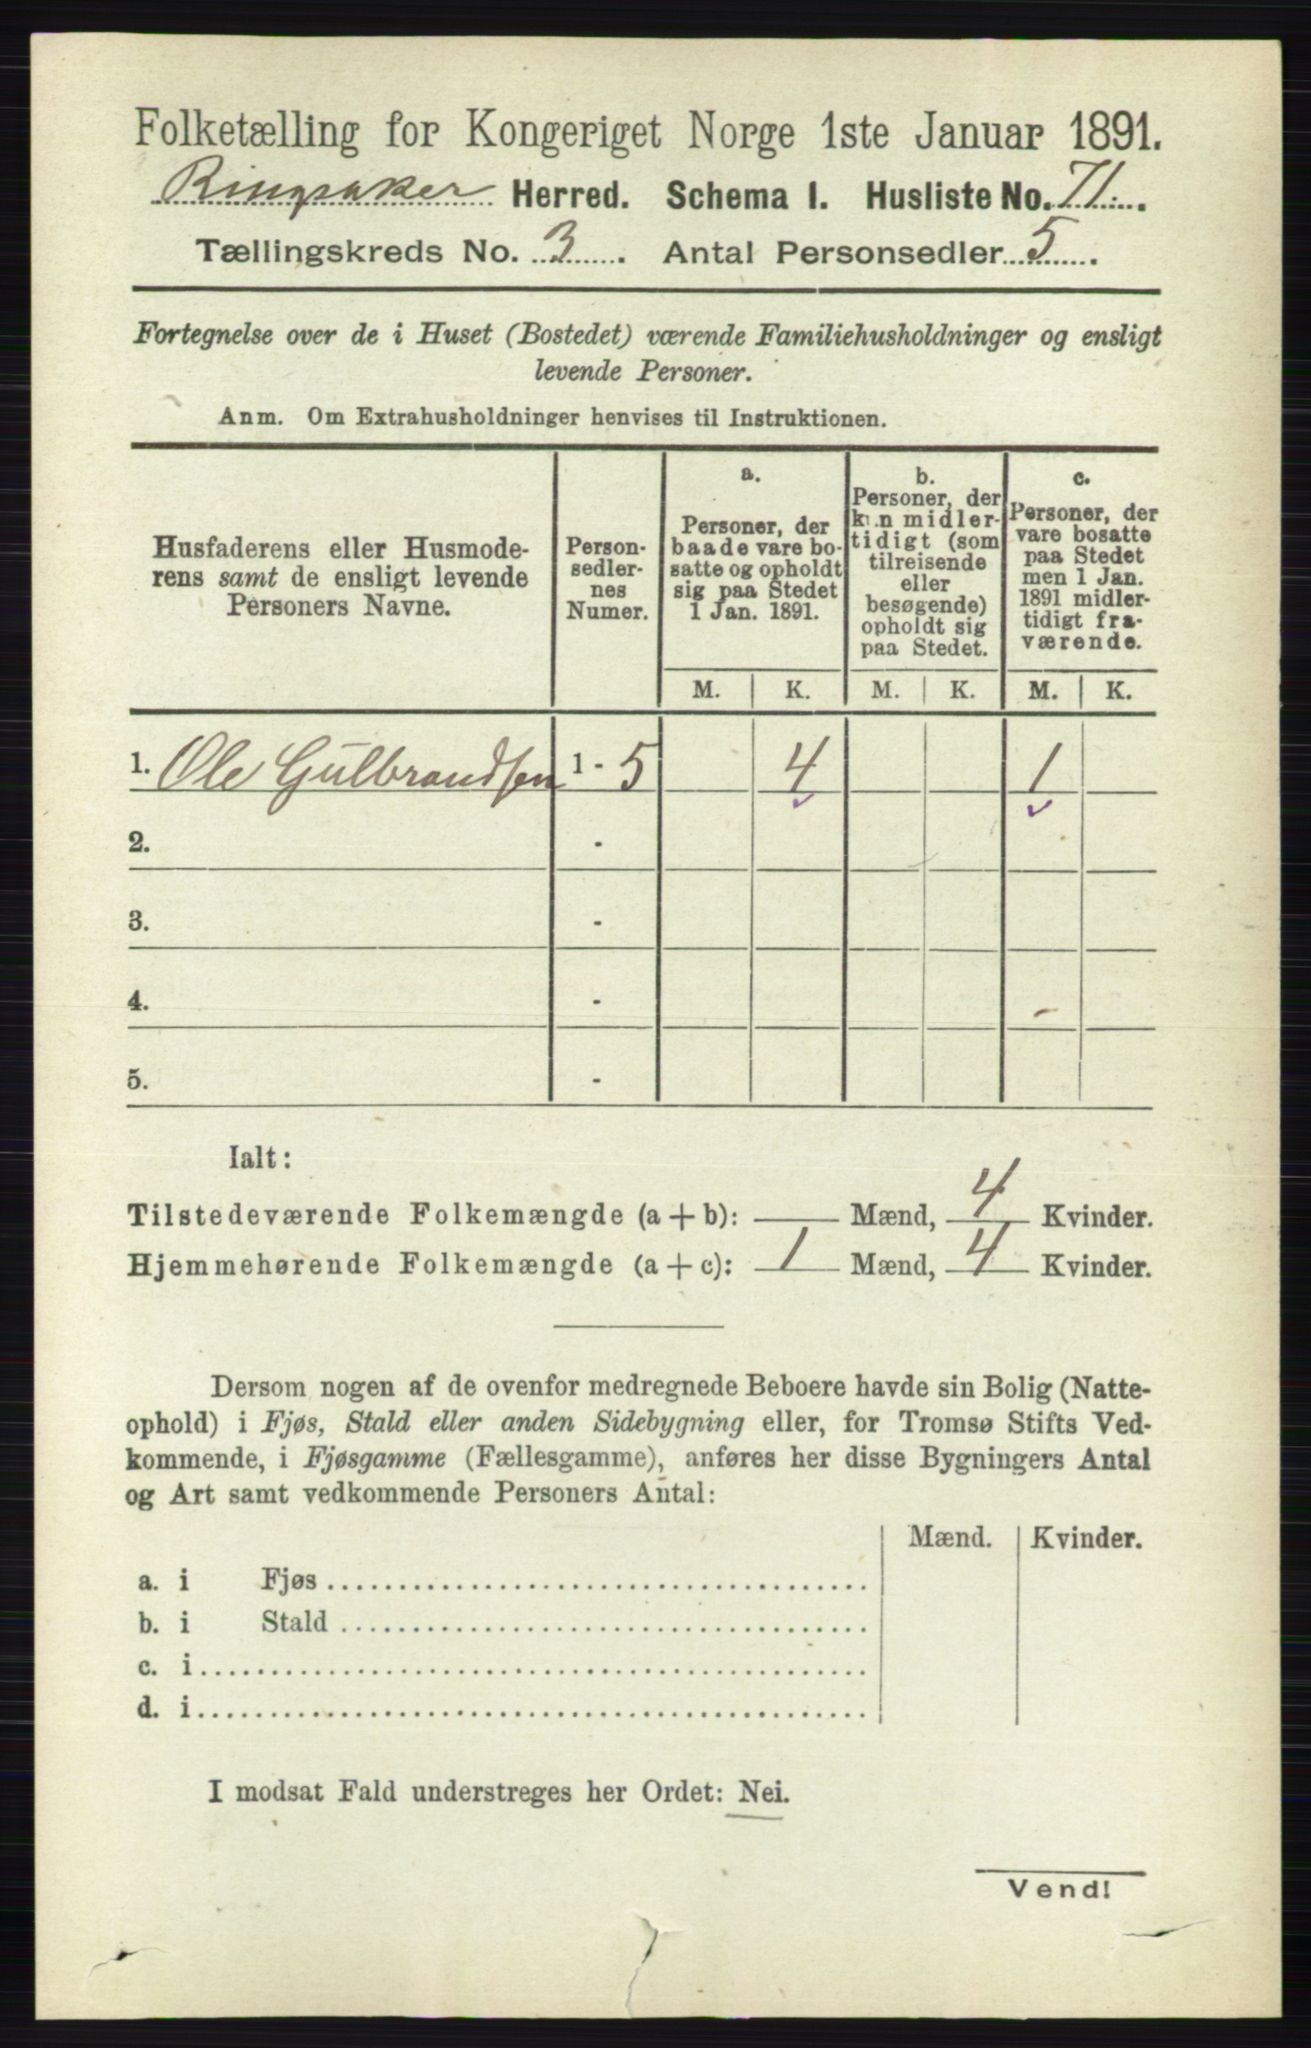 Folketælling for Kongeriget Norge 1ste Januar 1891.
Ringsaker Herred. Schema I. Husliste No. 71.
Tællingskreds No. 3. Antal Personsedler 5.
Fortegnelse over de i Huset (Bostedet) værende Familiehusholdninger og ensligt
levende Personer.
Anm. Om Extrahusholdninger henvises til Instruktionen.
Husfaderens eller Husmode-
rens samt de ensligt levende
Personers Navne.
Person-
sedler-
nes
Numer.
a.
Personer, der
baade vare bo-
satte og opholdt
sig paa Stedet
1 Jan. 1891.
b.
Personer, der
kun midler-
tidigt (som
tilreisende
eller
besøgende)
opholdt sig
paa Stedet.
c.
Personer, der
vare bosatte
paa Stedet
men 1 Jan.
1891 midler-
tidigt fra-
værende.
M. K. M. K. M. K.
1. Ole Gulbrandsen 1 - 5 4 1
2. -
3. -
4. -
5. -
Ialt:
Tilstedeværende Folkemængde (a + b): — Mænd, 4 Kvinder.
Hjemmehørende Folkemængde (a + c): 1 Mænd, 4 Kvinder.
Dersom nogen af de ovenfor medregnede Beboere havde sin Bolig (Natte-
ophold) i Fjøs, Stald eller anden Sidebygning eller, for Tromsø Stifts Ved-
kommende, i Fjøsgamme (Fællesgamme), anføres her disse Bygningers Antal
og Art samt vedkommende Personers Antal:
Mænd. Kvinder.
a. i Fjøs
b. i Stald
c. i
d. i
I modsat Fald understreges her Ordet: Nei.
Vend!